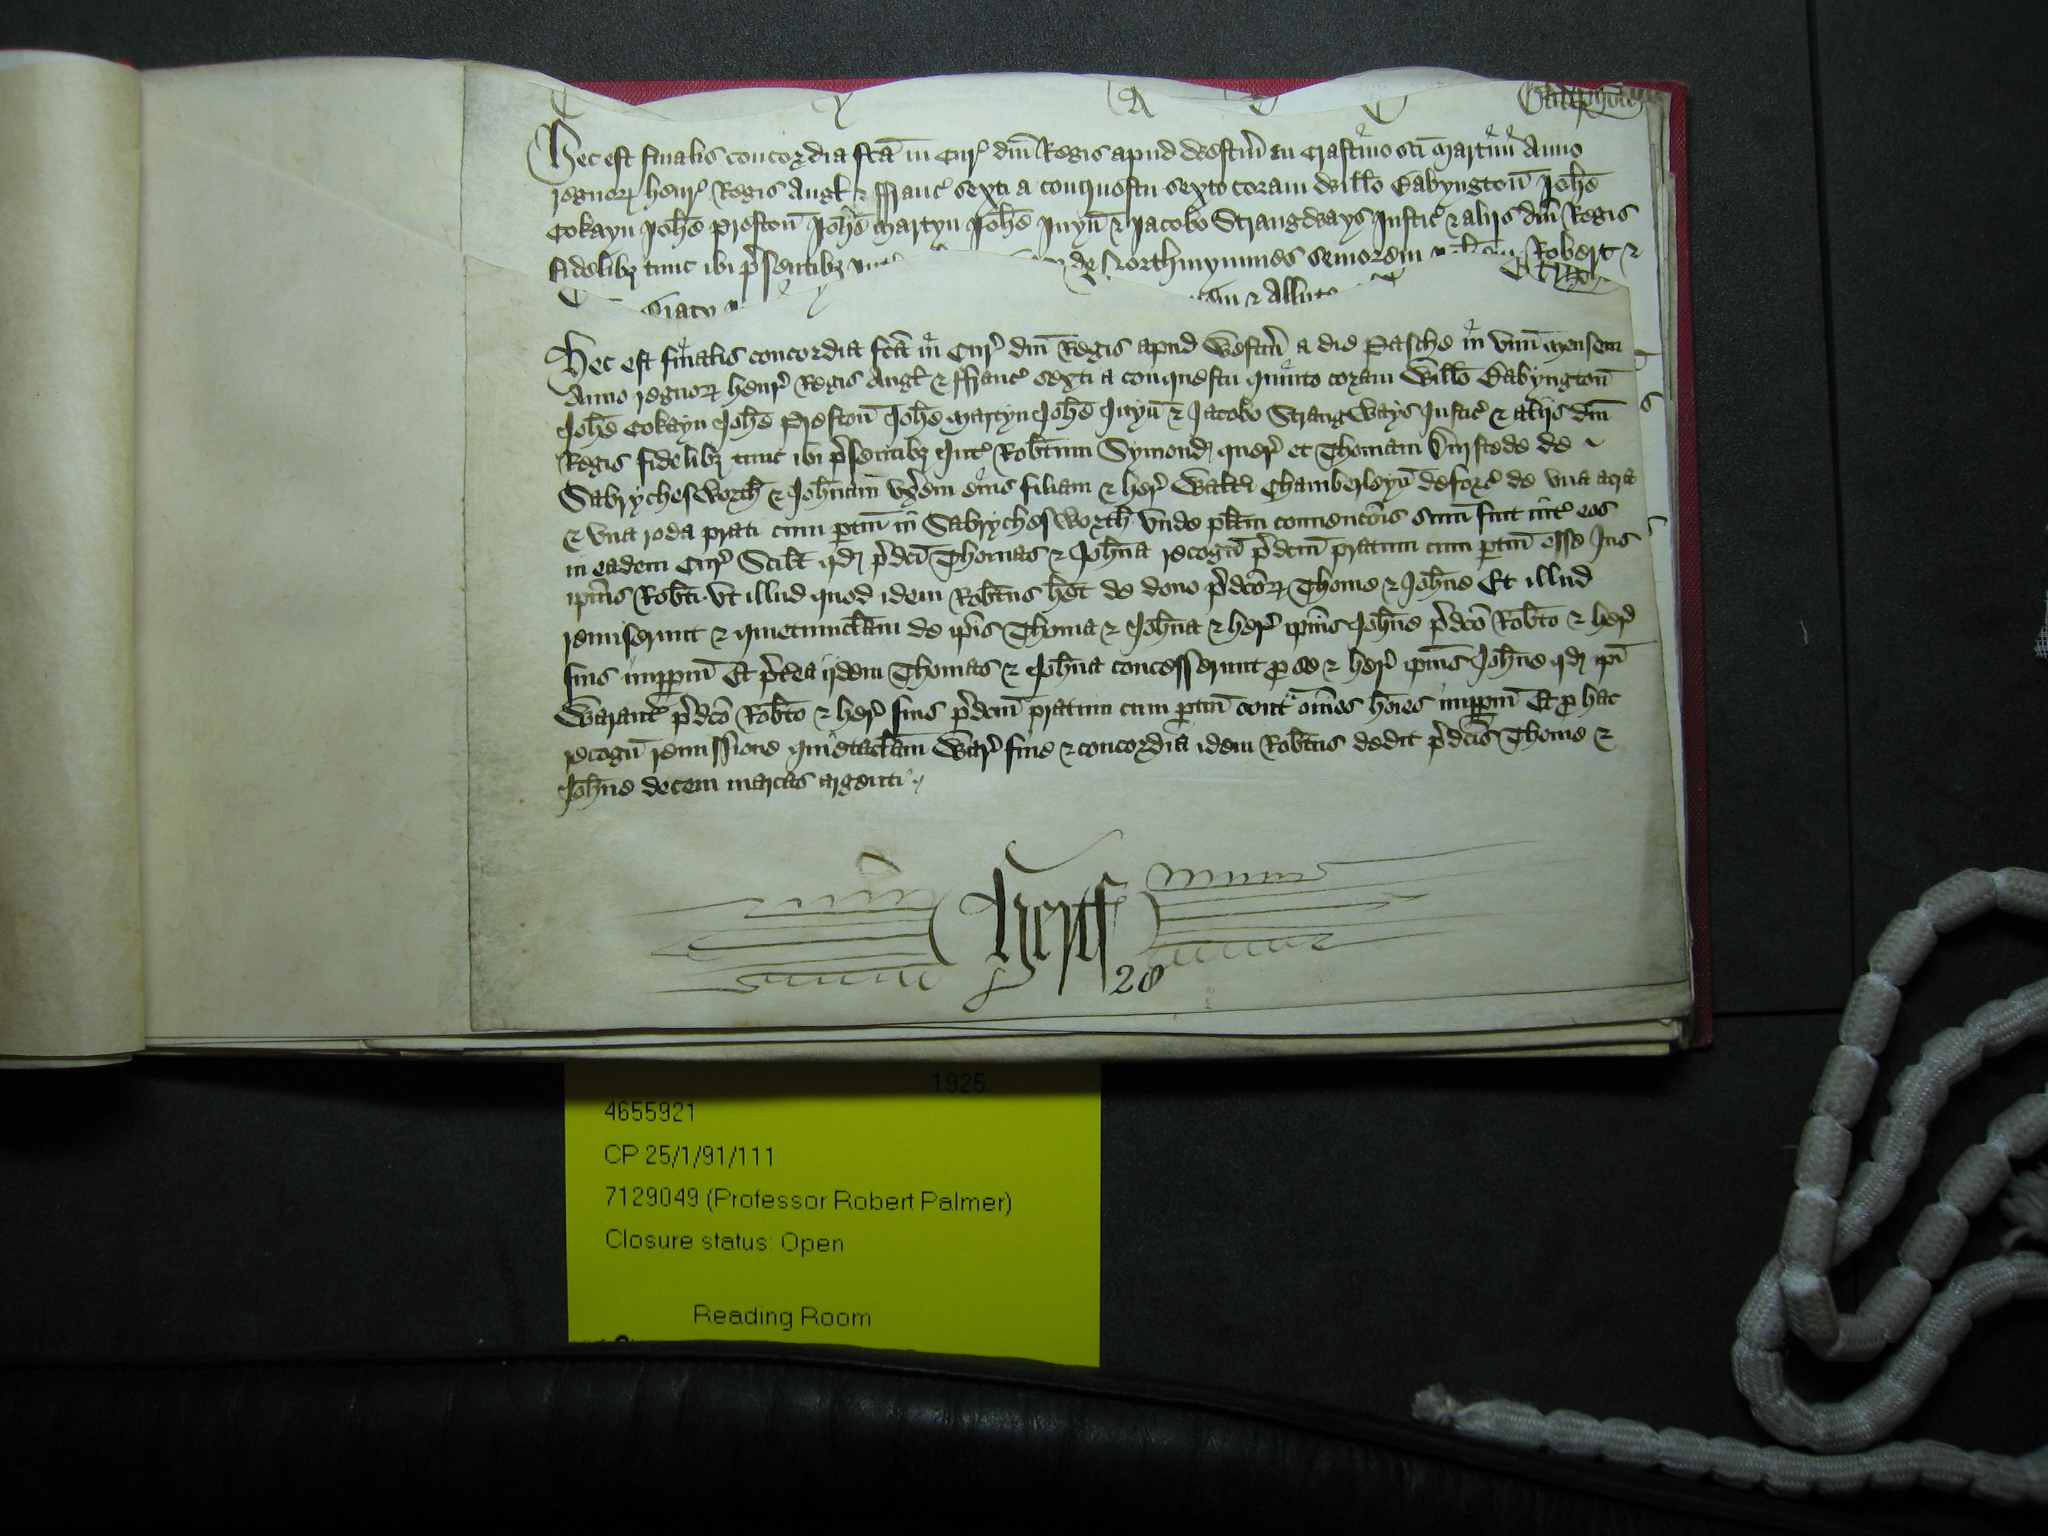 Hec est finalis concordia fcā in Cur' dn̄i Regis apud Westm̄ in Crastino sc̄i Martini Anno
regnor' Henr' Regis Angl' & Ffranc' sexti a conquestu sexto coram Will'o Babyngton̄ Joh̄e
Cokayn Joh̄e Preston̄ Joh̄e Martyn Joh̄e Juyn̄ & Jacobo Strangways Justic' & aliis dn̄i Regis
fidelib3 tunc ibi p'sentib3 de Northmymmes seniorem Robert &
Hec est finalis concordia fcā in Cur' dn̄i Regis apud Westm̄ a die Pasche in vnū mensem
Anno regnor' Henr' Regis Angl' & Ffranc' sexti a conquestu quinto coram Will'o Babyngton̄
Joh̄e Cokayn Joh̄e Preston̄ Joh̄e Martyn Joh̄e Juyn̄ & Jacobo Strangways Justic' & aliis dn̄i
Regis fidelib3 tunc ibi p'sentib3 Int' Rob̄tum Symond' quer' et Thomam de
Sabrychesworth̄ & Joh̄nam vx̄em eius filiam & her' Walt'i Chamberleyn̄ deforc' de vna acra
& vna roda prati cum ptin̄ in Sabrychesworth̄ vnde pl̄itm conuencōis sum̄ fuit int' eos
in eadem Cur' Scilt' qd' p'dc̄i Thomas & Joh̄na recogn̄ p'dcm̄ pratum cum ptin̄ esse Jus
ip̄ius Rob̄ti vt illud quod idem Rob̄tus h̄et de dono p'dc̄or' Thome & Joh̄ne Et illud
remiserunt & quietumclam̄ de ip̄is Thoma & Joh̄na & her' ip̄ius Joh̄ne p'dc̄o Rob̄to & her'
suis imppm̄ Et p'terea iidem Thomas & Joh̄na concesserunt p se & her' ip̄ius Joh̄ne qd' ip̄i
Warant' p'dc̄o Rob̄to & her' suis p'dcm̄ pratum cum ptin̄ cont' om̄es hōies imppm̄ Et p hac
recogn̄ remissione quietaclam̄ War' fine & concordia idem Rob̄tus dedit p'dc̄is Thome &
Joh̄ne decem marcas argenti
Hertf
28
1925
4655921
CP 25/1/91/111
7129049 (Professor Robert Palmer)
Closure status: Open
Reading Room